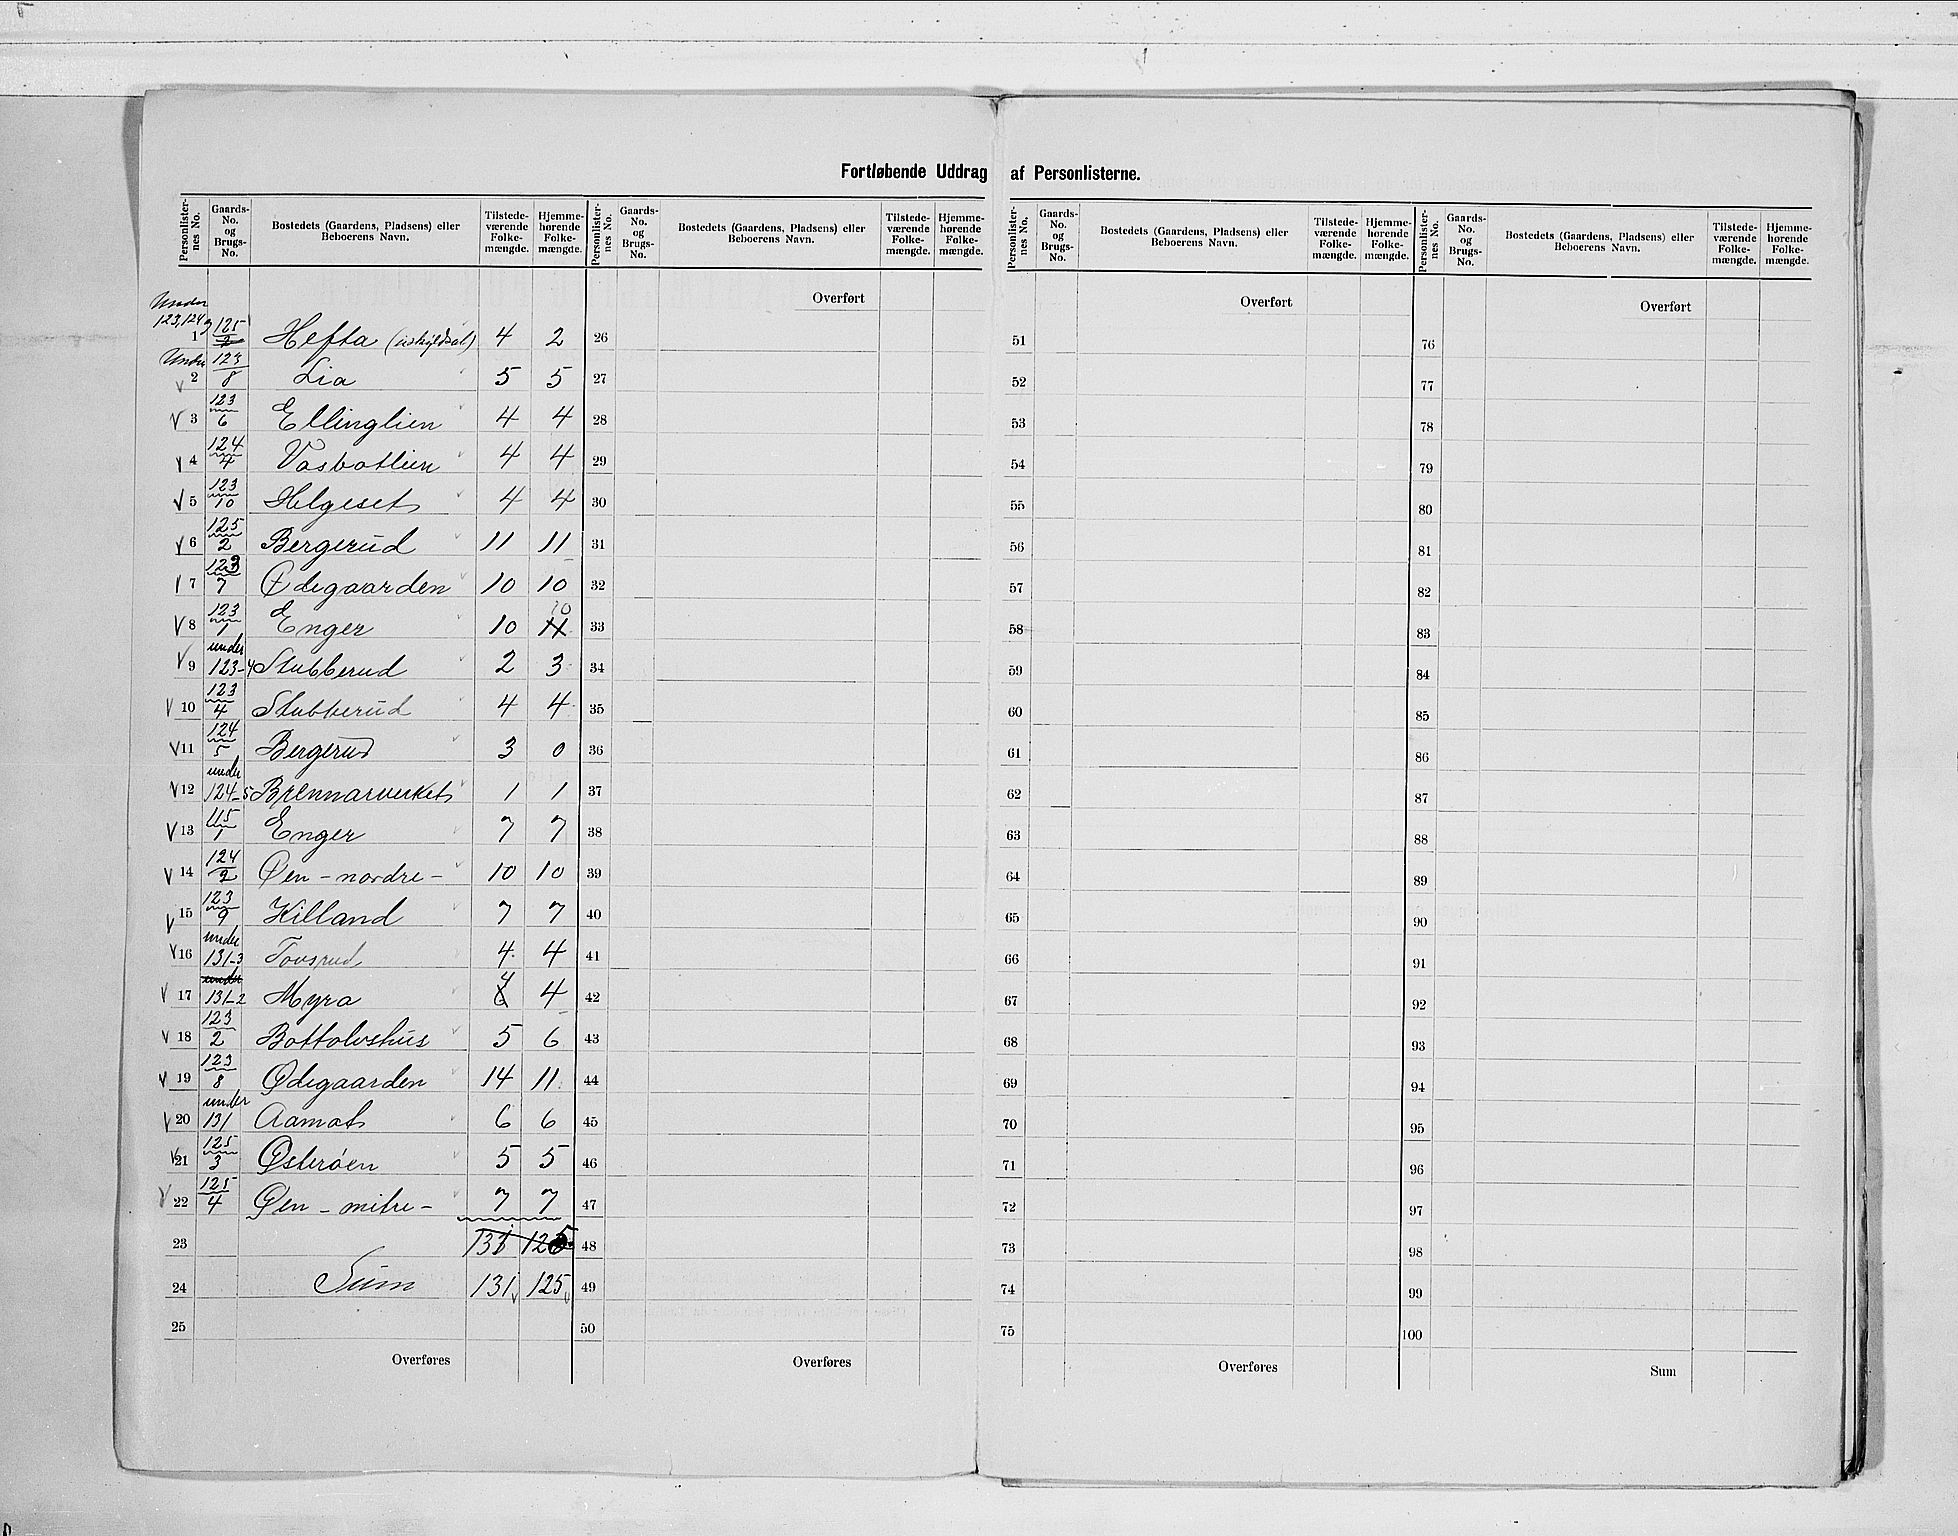 Fortløbende Uddrag af Personlisterne.
Personlister-nes No. Gaards-No. og Brugs-No. Bostedets (Gaardens, Pladsens) eller Beboerens Navn. Tilstede-værende Folke-mængde. Hjemme-hørende Folke-mængde.
Under 123, 124 og
1 125/2 Hefta (uskyldsat) 4 2
Under
2 123/8 Lia 5 5
3 123/6 Ellinglien 4 4
4 124/4 Vasbotlien 4 4
5 123/10 Helgeset 4 4
6 125/2 Bergerud 11 11
7 123/7 Ødegaarden 10 10
8 123/1 Enger 10 11 10
9 under 123-4 Stubberud 2 3
10 123/4 Stubberud 4 4
11 124/5 Bergerud 3 0
12 under 124-5 Brennarverket 1 1
13 115/1 Enger 7 7
14 124/2 Øen - nordre - 10 10
15 123/9 Killand 7 7
16 under 131-3 Tovsrud 4 4
17 under 131-2 Myra 6 4 4
18 123/2 Bottolvshus 5 6
19 123/8 Ødegaarden 14 11
20 under 131 Aamot 6 6
21 125/3 Østerøen 5 5
22 125/4 Øen - mitre - 7 7
23 131 125
24 Sum 131 125
25
Overføres
Personlister-nes No. Gaards-No. og Brugs-No. Bostedets (Gaardens, Pladsens) eller Beboerens Navn. Tilstede-værende Folke-mængde. Hjemme-hørende Folke-mængde.
Overført
26
27
28
29
30
31
32
33
34
35
36
37
38
39
40
41
42
43
44
45
46
47
48
49
50
Overføres
Personlister-nes No. Gaards-No. og Brugs-No. Bostedets (Gaardens, Pladsens) eller Beboerens Navn. Tilstede-værende Folke-mængde. Hjemme-hørende Folke-mængde.
Overført
51
52
53
54
55
56
57
58
59
60
61
62
63
64
65
66
67
68
69
70
71
72
73
74
75
Overføres
Personlister-nes No. Gaards-No. og Brugs-No. Bostedets (Gaardens, Pladsens) eller Beboerens Navn. Tilstede-værende Folke-mængde. Hjemme-hørende Folke-mængde.
Overført
76
77
78
79
80
81
82
83
84
85
86
87
88
89
90
91
92
93
94
95
96
97
98
99
100
Sum